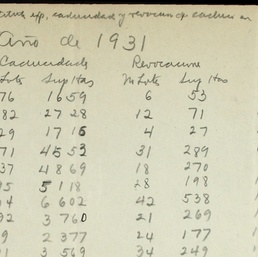 caducidad y revocación
Año de 1931
Caducidade Revocacione
Lots Sup Has No Lots Sup Has
76 1659 6 53
82 2728 12 71
29 1715 4 27
71 4553 31 289
37 4869 18 270
95 5118 28 198
4 6602 42 538
92 3760 21 269
9 2377 24 177
1 3569 34 249